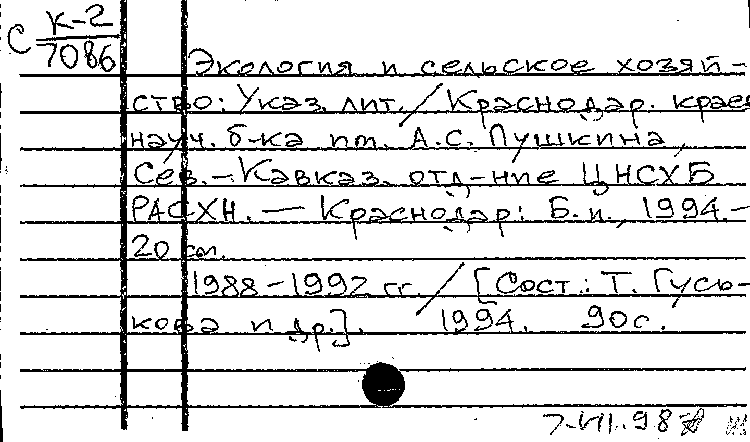 С К-2
7086
Экология и сельское хозяй-
ство: Указ. лит. / Краснодар. краев
науч. б-ка им. А.С. Пушкина,
Сев.-Кавказ. отд-ние ЦНСХБ
РАСХН. — Краснодар: Б.и., 1994.-
20 см.
1988-1992 гг. / [Сост.: Т. Гусь-
кова и др.]. 1994. 90с.
7-VII.98